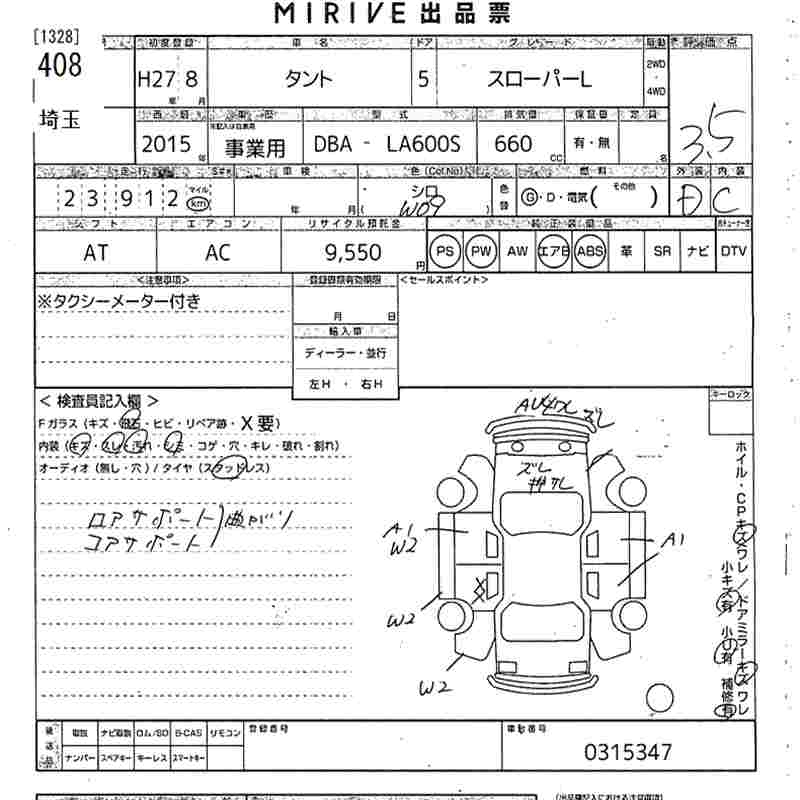 MIRIVE 出品票
[1328]
408
埼玉
初度登録 車名 ドア グレード 駆動 評価点
H27 8 タント 5 スローパーL 2WD・4WD
年 月
3.5
西暦 車歴 型式 排気量 保証書 定員
2015年 事業用 DBA - LA600S 660 CC 有・無 名
走行 車検 色(Col.No) 燃料 外装 内装
23912 マイル km 年 月 シロ W09 色替 G・D・電気( その他 ) D C
シフト エアコン リサイクル預託金 純正装備品
AT AC 9,550円 PS PW AW エアB ABS 革 SR ナビ DTV
<注意事項> 登録書類有効期限 <セールスポイント>
※タクシーメーター付き
月 日
輸入車
ディーラー・並行
左H ・ 右H
キーロック
< 検査員記入欄 >
Fガラス(キズ・飛石・ヒビ・リペア跡・X要)
内装(キズ・スレ・汚れ・シミ・コゲ・穴・キレ・破れ・割れ)
オーディオ(無し・穴)/タイヤ(スタッドレス)
ロアサポート
コアサポート
曲がり
ズレ
ズレ
A1
W2
X
A1
W2
W2
ホイル・CPキズワレ/ドアミラーキズワレ
小キズ有 小U有 補修有
後送品 取説 ナビ取説 ロム/SD B-CAS リモコン 登録番号 車動番号
ナンバー スペアキー キーレス スマートキー
0315347
(出品票記入における注意事項)